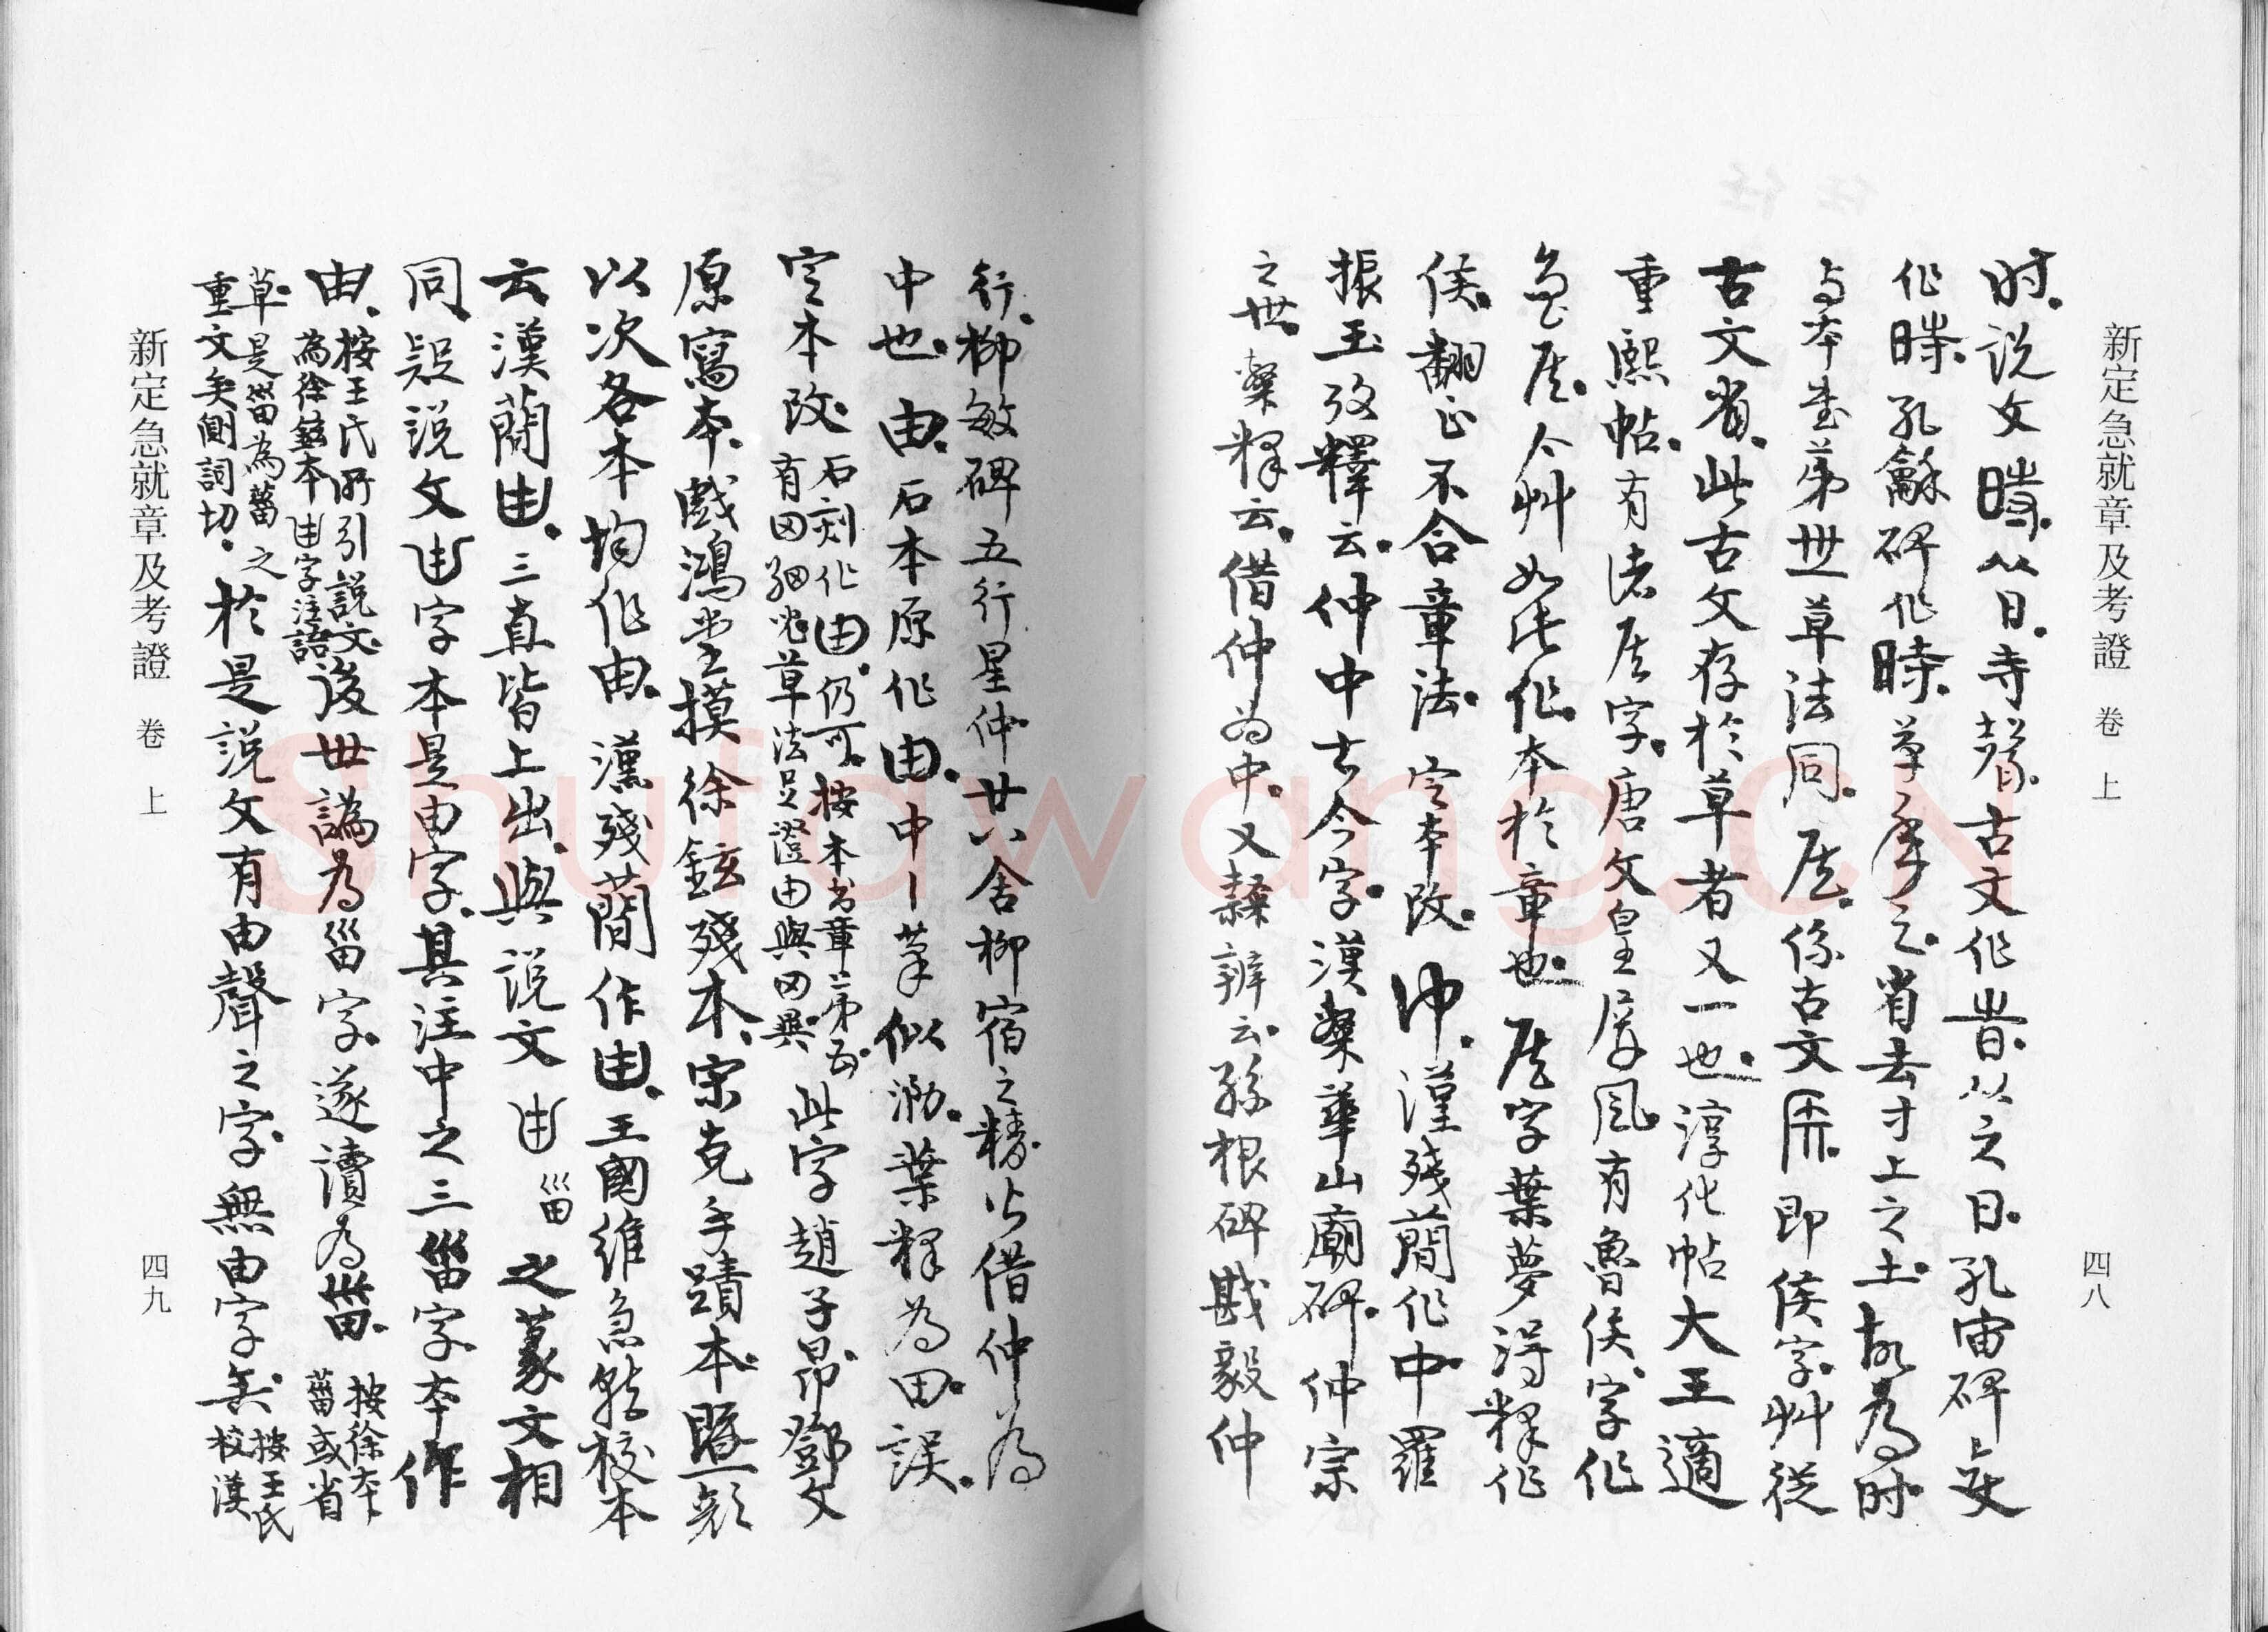 新定急就章及考證 卷上
四八
时。说文時。从日。寺聲。古文作旹。从之日。孔宙碑
作時。孔龢碑作時。草之省去寸上之土。故为时
与本書第卅一草法同。係古文𥎦。即侯字。艸從
古文省。此古文存於草者又一也。淳化帖大王適
重熙帖。有诸侯字。唐文皇屏風。有魯侯。字作
今艸如此作。本於章也。字葉夢得釋作
侯。翻正不合章法。定本改。仲。漢殘簡作中。羅
振玉攷釋云。仲中古今字。漢樊華山廟碑。仲宗
之世。樊释云。借仲为中。又隸辨云孫根碑戡毅仲
行。柳敏碑五行星仲廿八舍柳宿之精皆借仲为
中也。由。石本原作由。中丨筆似泐。葉释为田。誤。
定本改。石刻作由。仍可。按本书章第五。
有田細兆草法足證由與田異。此字趙子昂。鄧文
原寫本。戲鴻堂摸徐鉉殘本。宋克手蹟本。暨
以次各本均作由。漢殘簡作由。王國維急就校本
云漢簡由。三直皆上出。與说文甾之篆文相
同。疑说文甾字本是由字。其注中之三甾字。本作
由。按王氏所引説文。
為徐鉉本由字注語。後世譌为甾字。遂讀为甾。按徐本
甾或省
草。是甾為葘之
重文矣側詞切。於是説文有由聲之字。無由字矣。按王氏
校漢
新定急就章及考證 卷上
四九